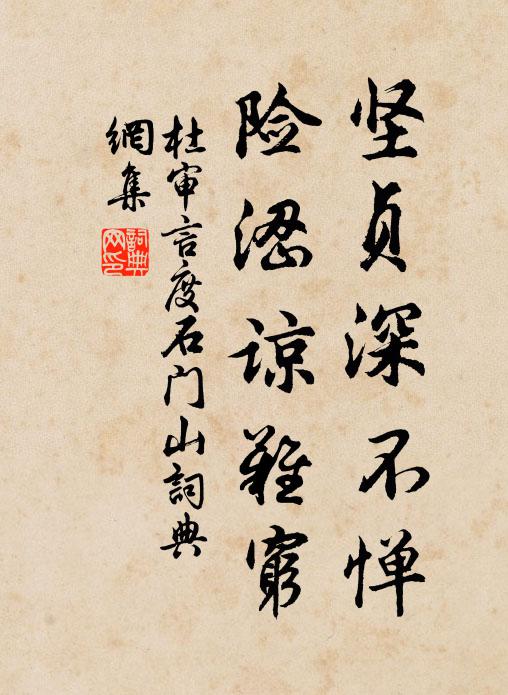 坚贞深不惮
险涩谅难穷
杜审言度石门山詞典
網集
詞典
网印